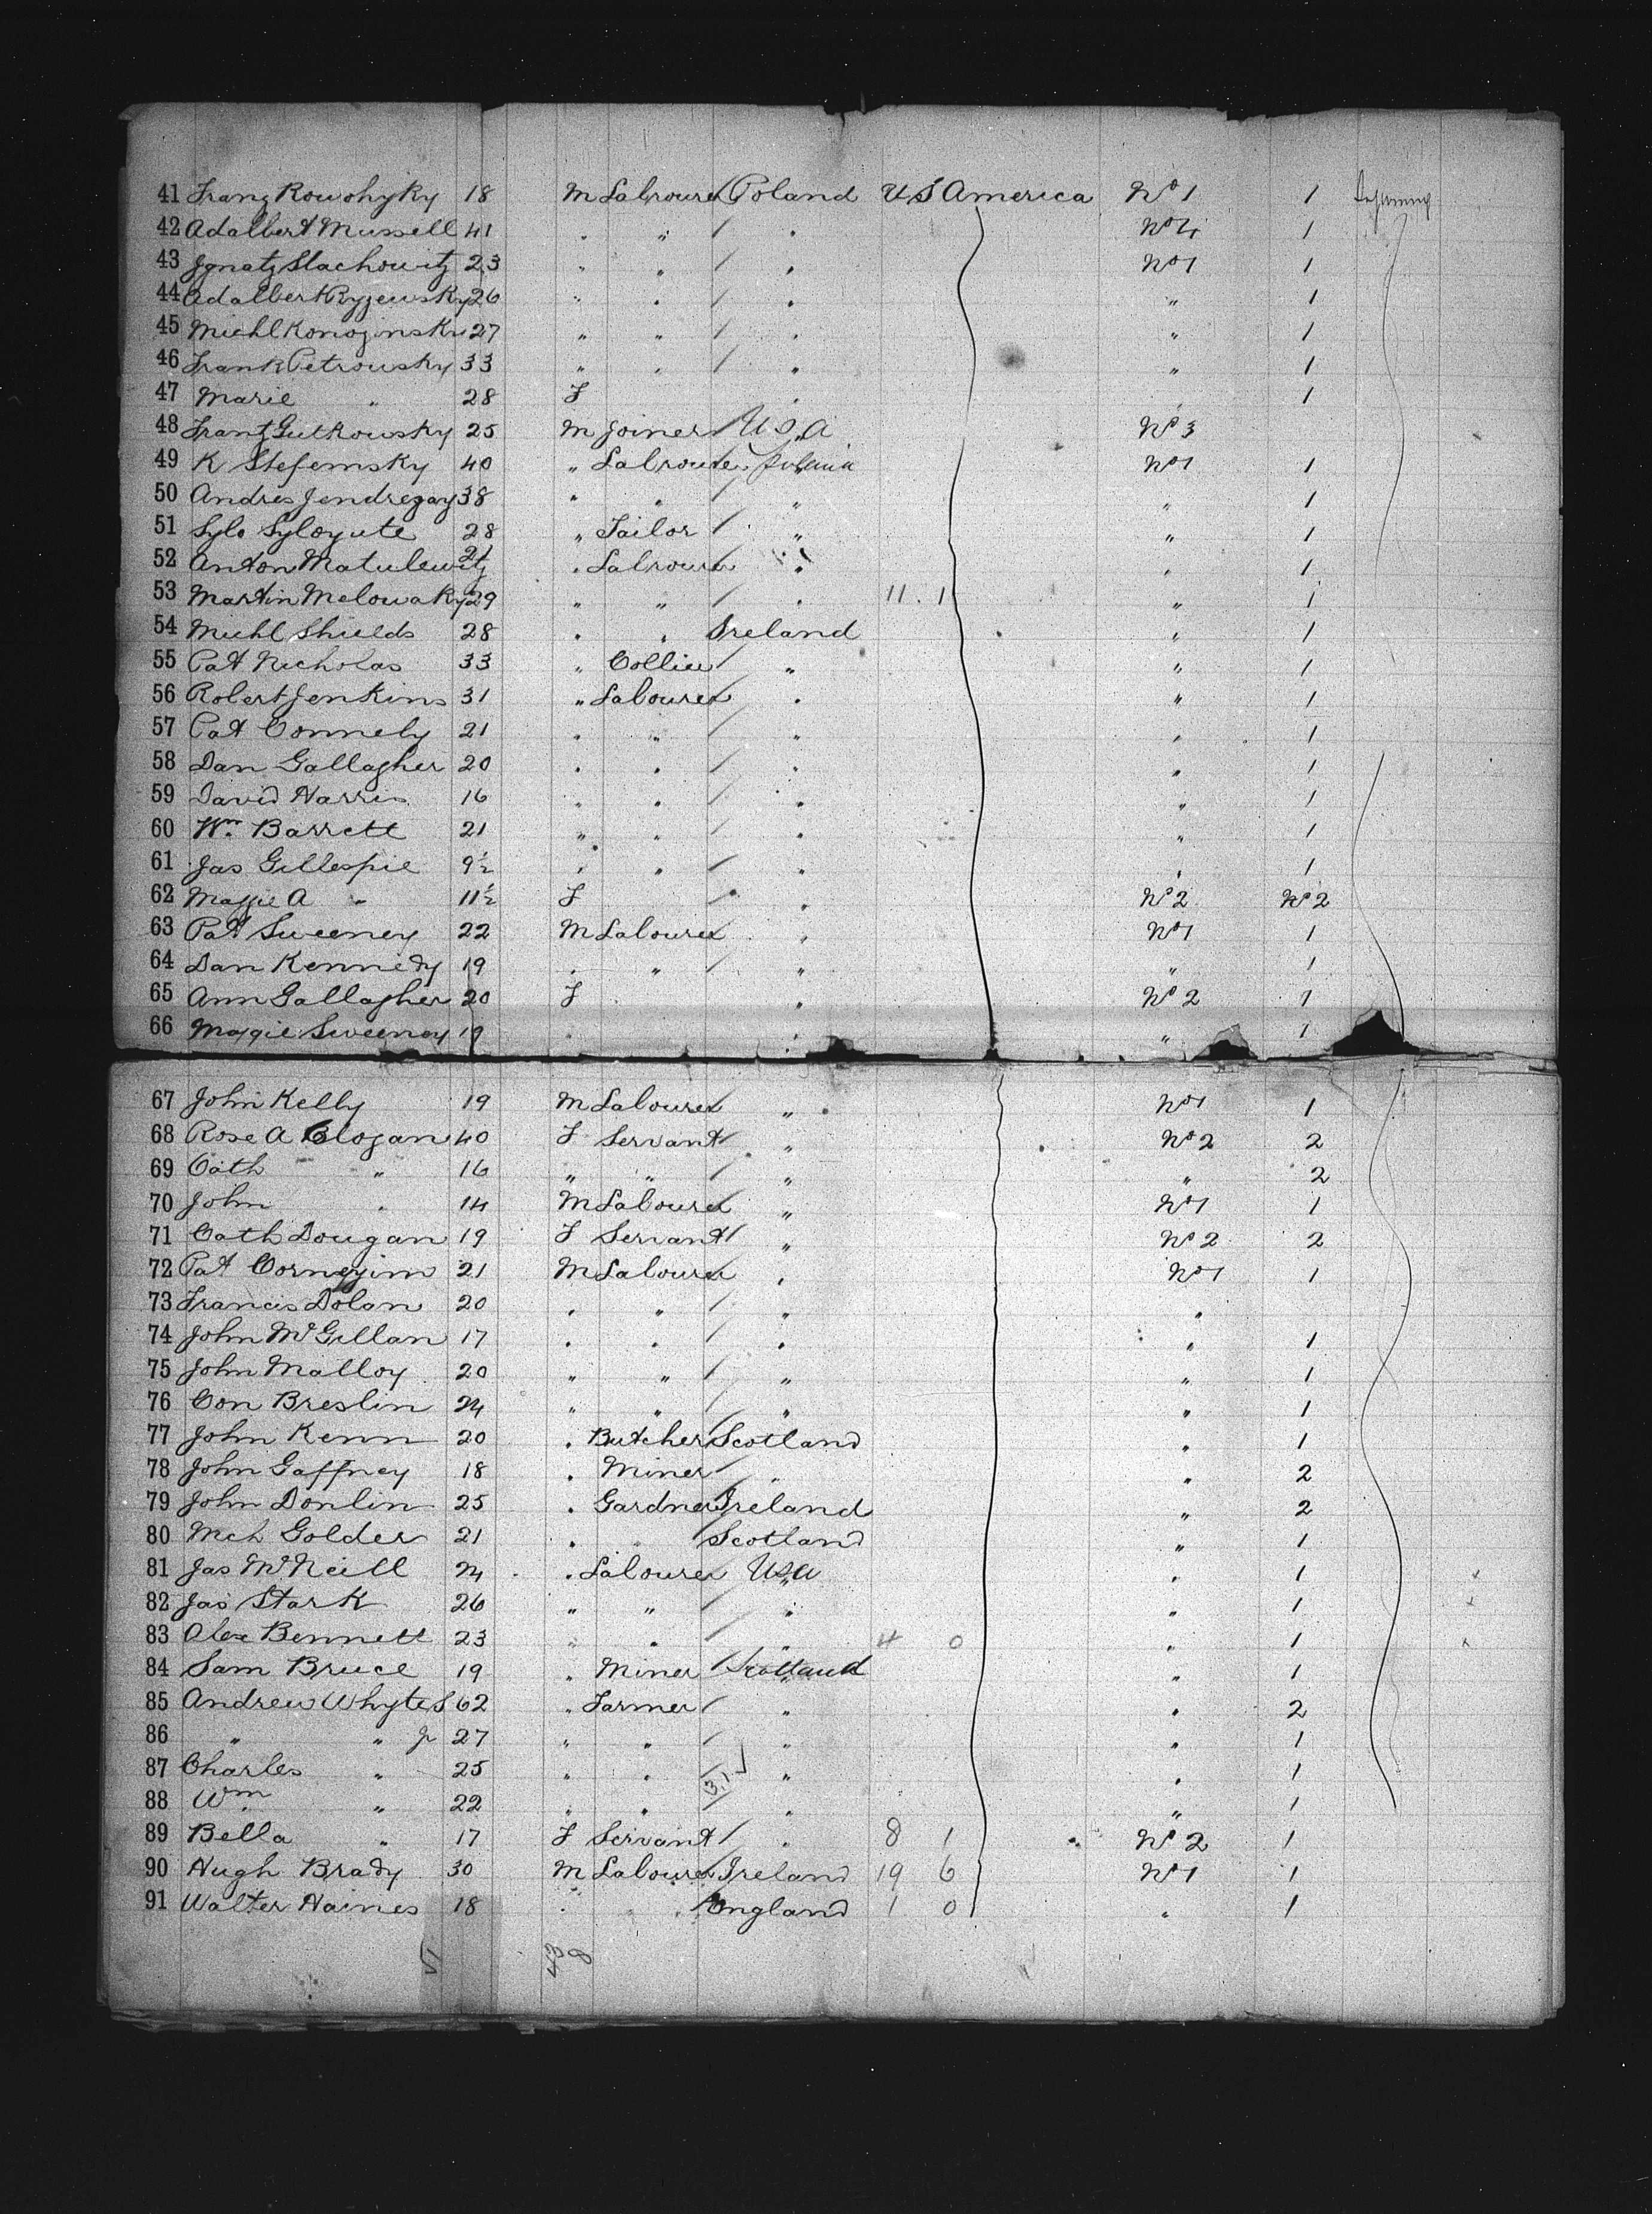 41 Franz Rowohyky 18 M Labourer Poland U S America No 1 1
42 Adalbert Mussell 41 " " " No 4 1
43 Ignatz Stachowitz 23 " " " No 1 1
44 Adalbert Ryzewsky 26 " " " " 1
45 Michl Konozinsky 27 " " " " 1
46 Frank Petrowsky 33 " " " " 1
47 Marie " 28 F " " 1
48 Frantz Gutkowsky 25 M Joiner U S A No 3
49 K Stefemsky 40 " Labourer Poland No 1 1
50 Andres Jendregay 38 " " " " 1
51 Sylo Syloyute 28 " Tailor " " 1
52 Anton Matulewitz 21 " Labourer " " 1
53 Martin Melowaky 29 " " " 11 . 1 " 1
54 Michl Shields 28 " " Ireland " 1
55 Pat Nicholas 33 " Collier " " 1
56 Robert Jenkins 31 " Labourer " " 1
57 Pat Connely 21 " " " " 1
58 Dan Gallagher 20 " " " " 1
59 David Harris 16 " " " " 1
60 Wm. Barrett 21 " " " " 1
61 Jas Gillespie 9½ " " " " 1
62 Maggie A " 11½ F " No 2 No 2
63 Pat Sweeney 22 M Labourer " No 1 1
64 Dan Kennedy 19 " " " " 1
65 Ann Gallagher 20 F " No 2 1
66 Maggie Sweeney 19 " " " 1
67 John Kelly 19 M Labourer " No 1 1
68 Rose A Clogan 40 F Servant " No 2 2
69 Cath " 16 " " " " 2
70 John " 14 M Labourer " No 1 1
71 Cath Dougan 19 F Servant " No 2 2
72 Pat 21 M Labourer " No 1 1
73 Francis Dolan 20 " " " "
74 John McGillan 17 " " " " 1
75 John Malloy 20 " " " " 1
76 Con Breslin 24 " " " " 1
77 John Kenn 20 " Butcher Scotland " 1
78 John Gaffney 18 " Miner " " 2
79 John Donlin 25 " Gardner Ireland " 2
80 Mch Golder 21 " " Scotland " 1
81 Jas McNeill 24 " Labourer USA " 1
82 Jas Stark 26 " " " " 1
83 Alex Bennett 23 " " " 4 0 " 1
84 Sam Bruce 19 " Miner Scotland " 1
85 Andrew Whyte S 62 " Farmer " " 2
86 " " Jr 27 " " " " 1
87 Charles " 25 " " " " 1
88 Wm " 22 " " 3.1 " " 1
89 Bella " 17 F Servant " 8 1 No 2 1
90 Hugh Brady 30 M Labourer Ireland 19 6 No 1 1
91 Walter Haines 18 " " England 1 0 " 1